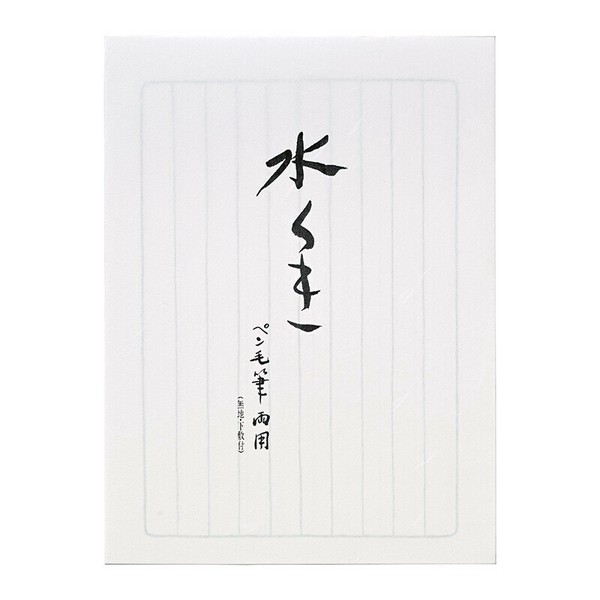 水くき
ペン毛筆両用
(無地・下敷付)